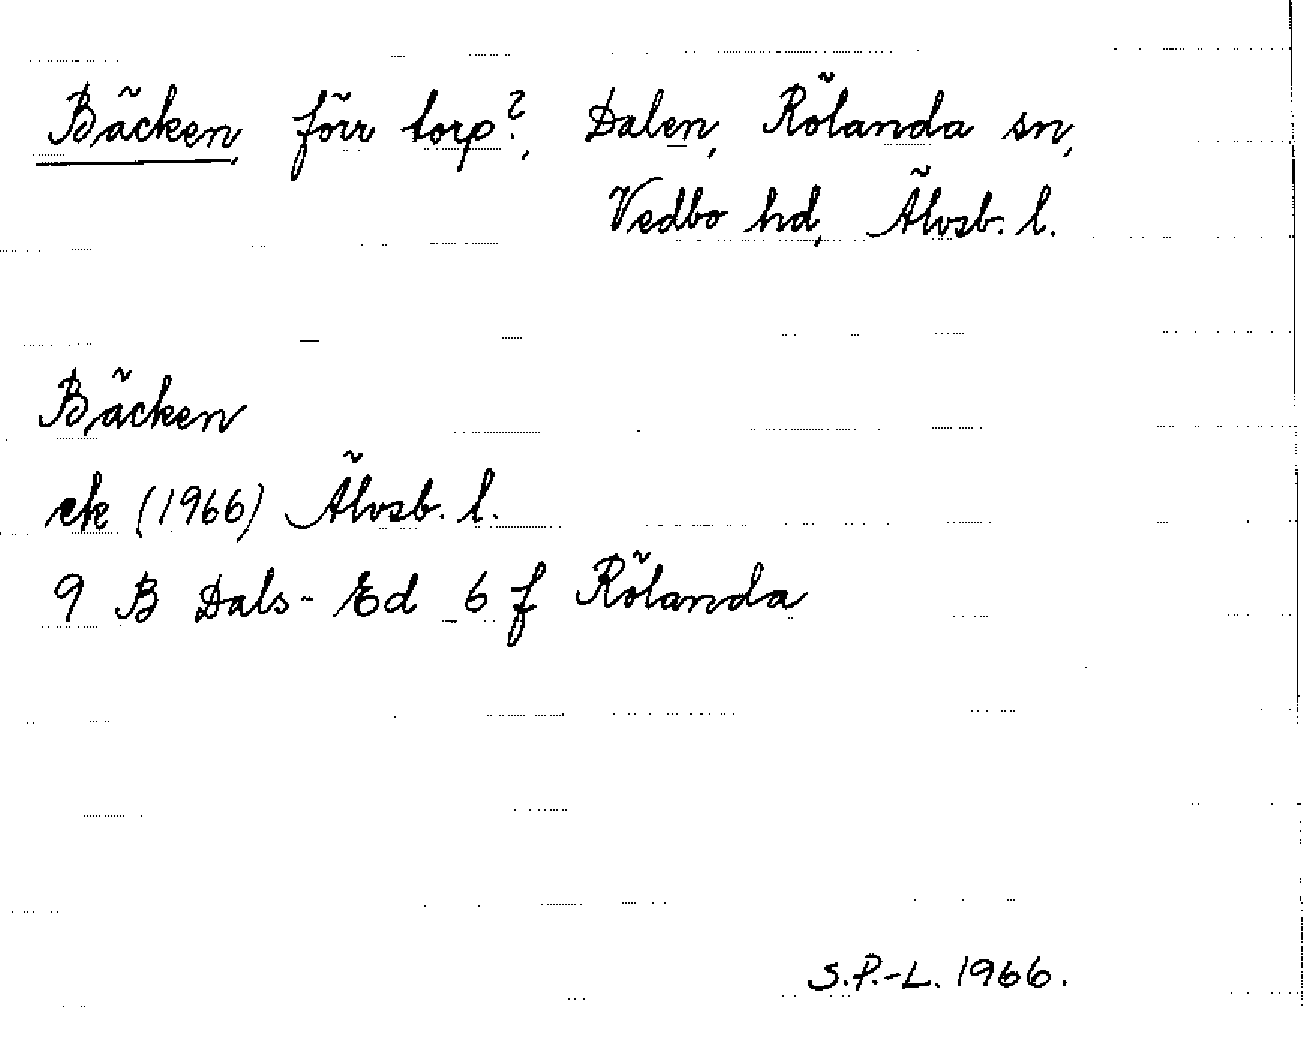 Bäcken, förr torp?, Dalen, Rölanda sn,
Vedbo hd, Älvsb. l.
Bäcken
ek (1966) Älvsb. l.
9 B Dals-Ed 6 f Rölanda
S.P.-L. 1966.